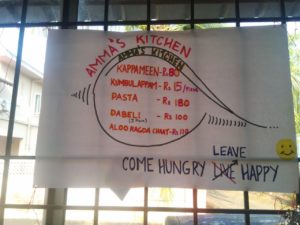 AMMA'S KITCHEN
AMMA'S KITCHEN
KAPPAMEEN - Rs 80
KUMBULAPPAM - Rs 15
PASTA - Rs 180
DABELI - Rs 100
ALOO RAGDA CHAAT - Rs 110
LEAVE
COME HUNGRY LIVE HAPPY